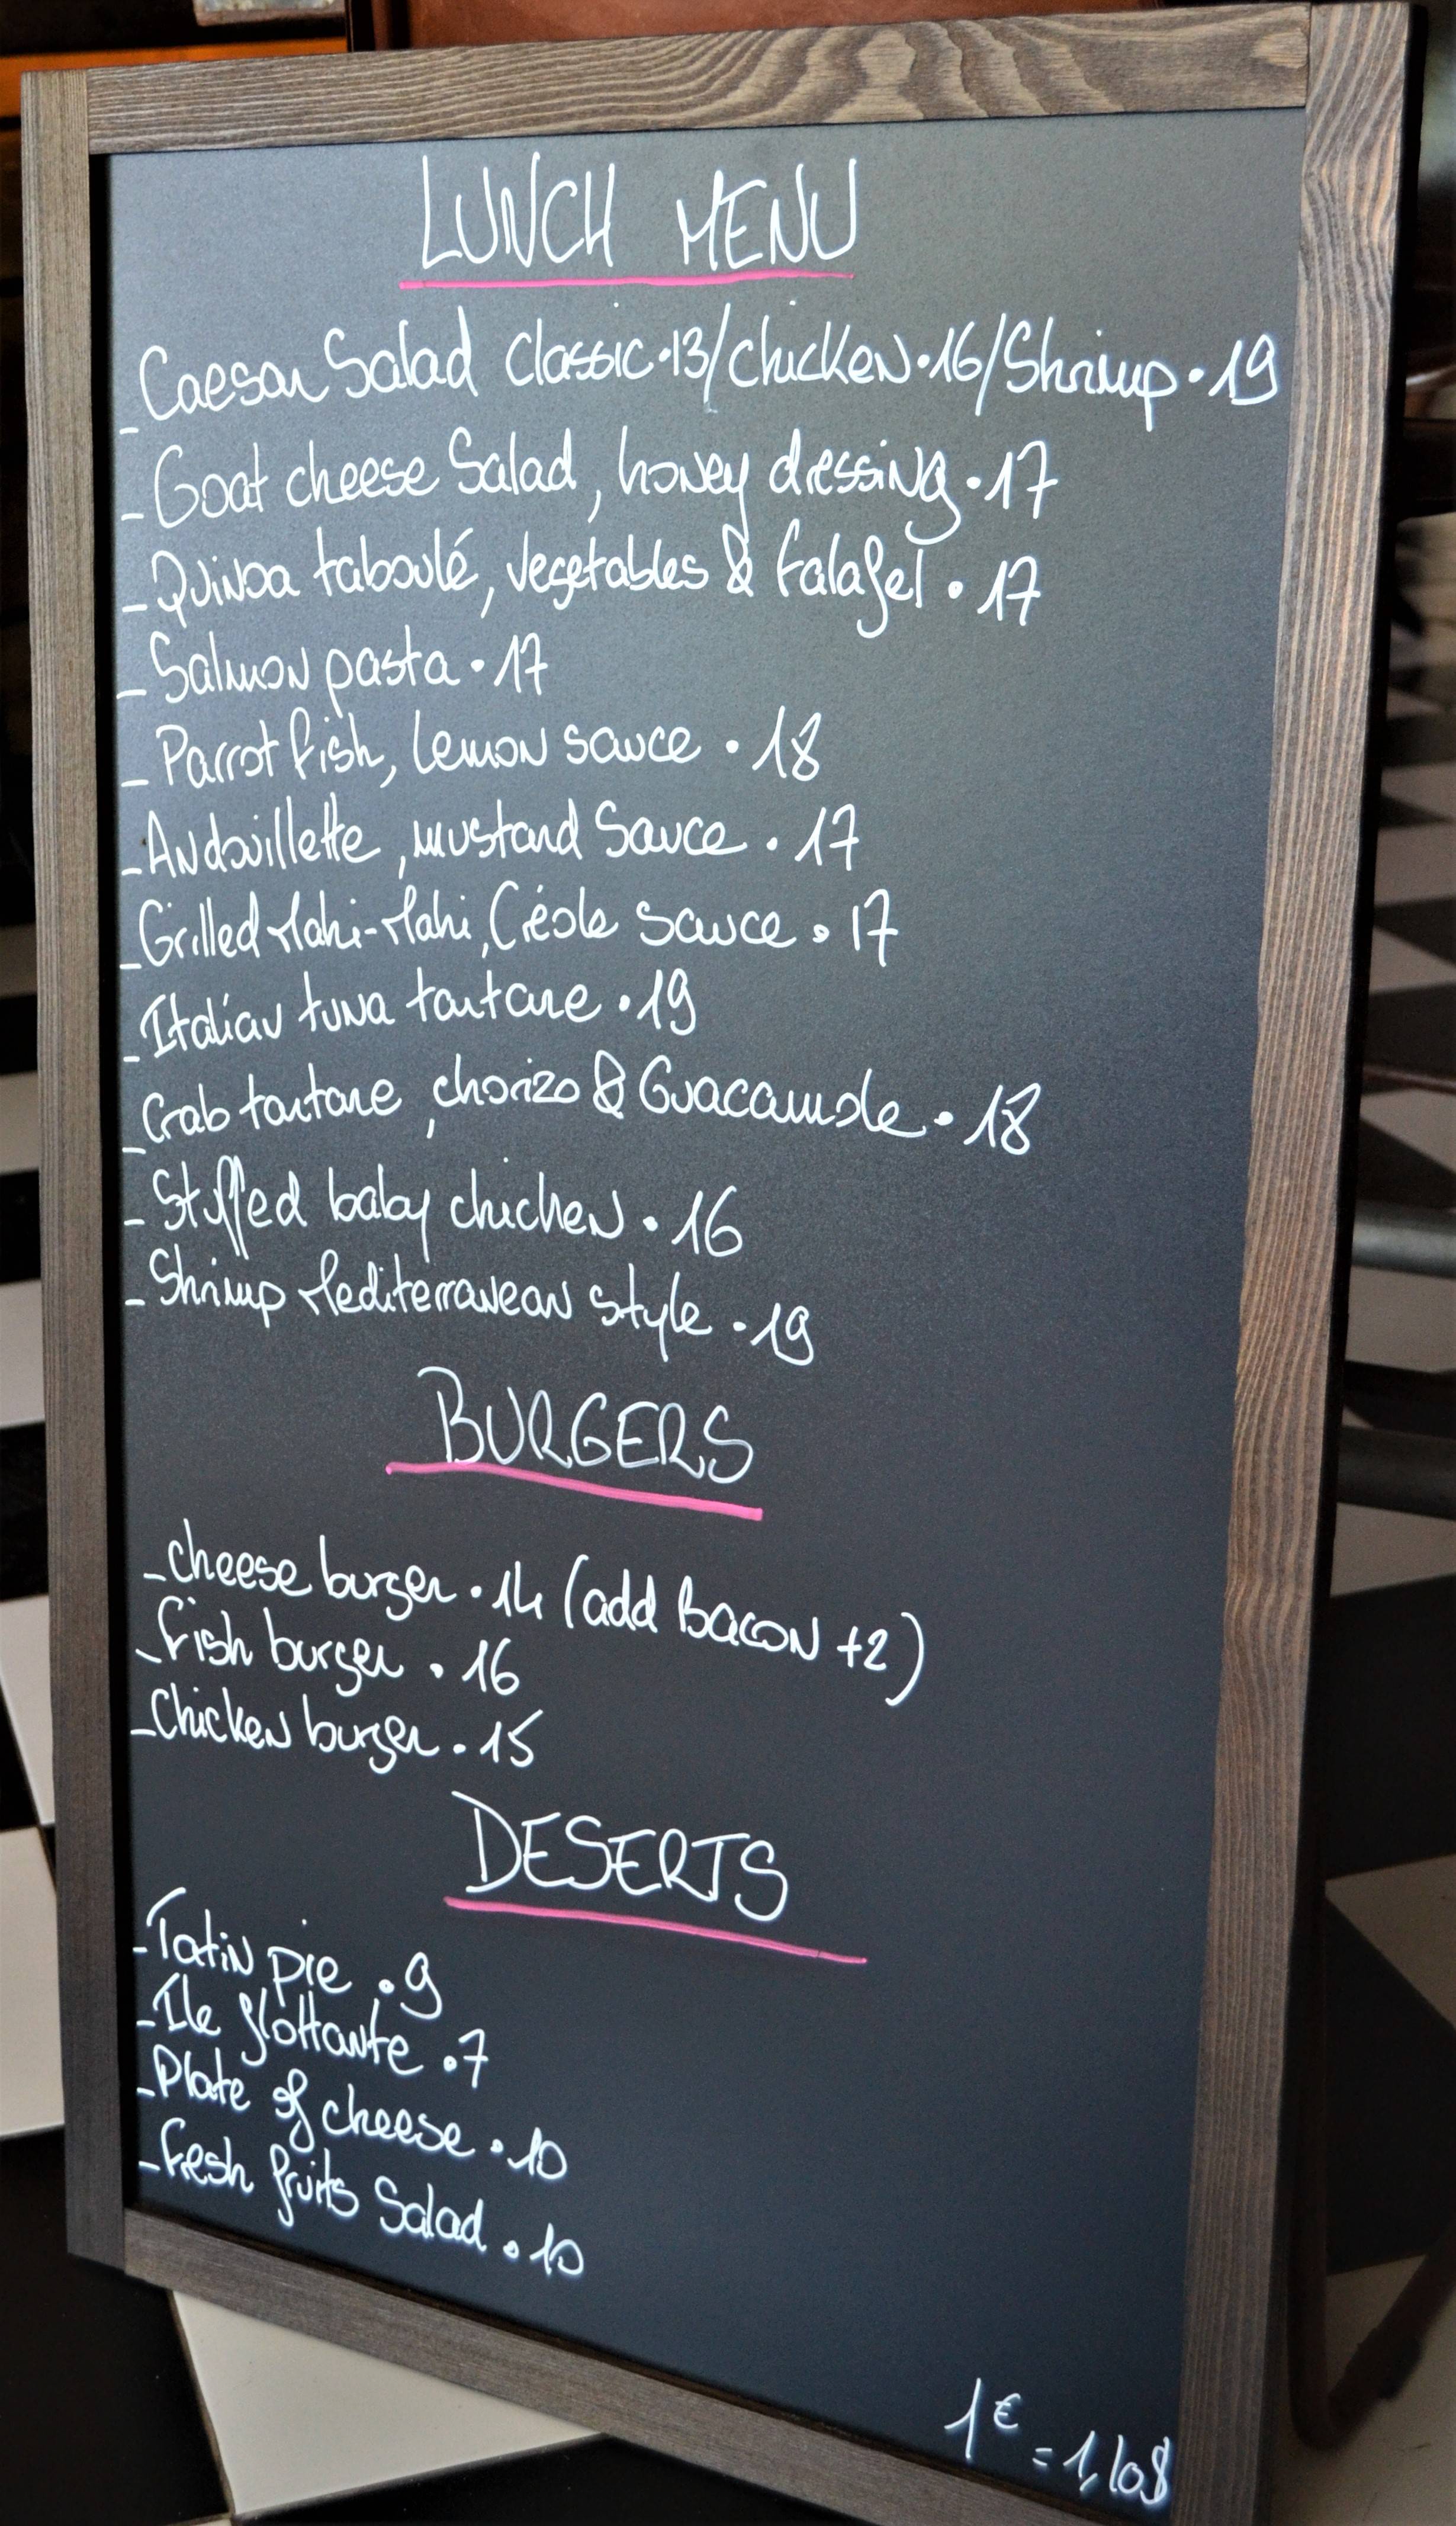 LUNCH MENU
_ Caesar Salad classic • 13/chicken • 16/Shrimp • 19
_ Goat cheese Salad, honey dressing • 17
_ Quinoa taboulé, vegetables & falafel • 17
_ Salmon pasta • 17
_ Parrot fish, lemon sauce • 18
_ Andouillette, mustard Sauce • 17
_ Grilled Mahi-Mahi, Créole sauce • 17
_ Italian tuna tartare • 19
_ Crab tartare, chorizo & Guacamole • 18
_ Stuffed baby chicken • 16
_ Shrimp Mediterranean style • 19
BURGERS
_ cheese burger • 14 (add Bacon +2)
_ fish burger • 16
_ Chicken burger • 15
DESERTS
_ Tatin pie • 9
_ Ile flottante • 7
_ Plate of cheese • 10
_ Fresh fruits Salad • 10
1€ = 1,10$